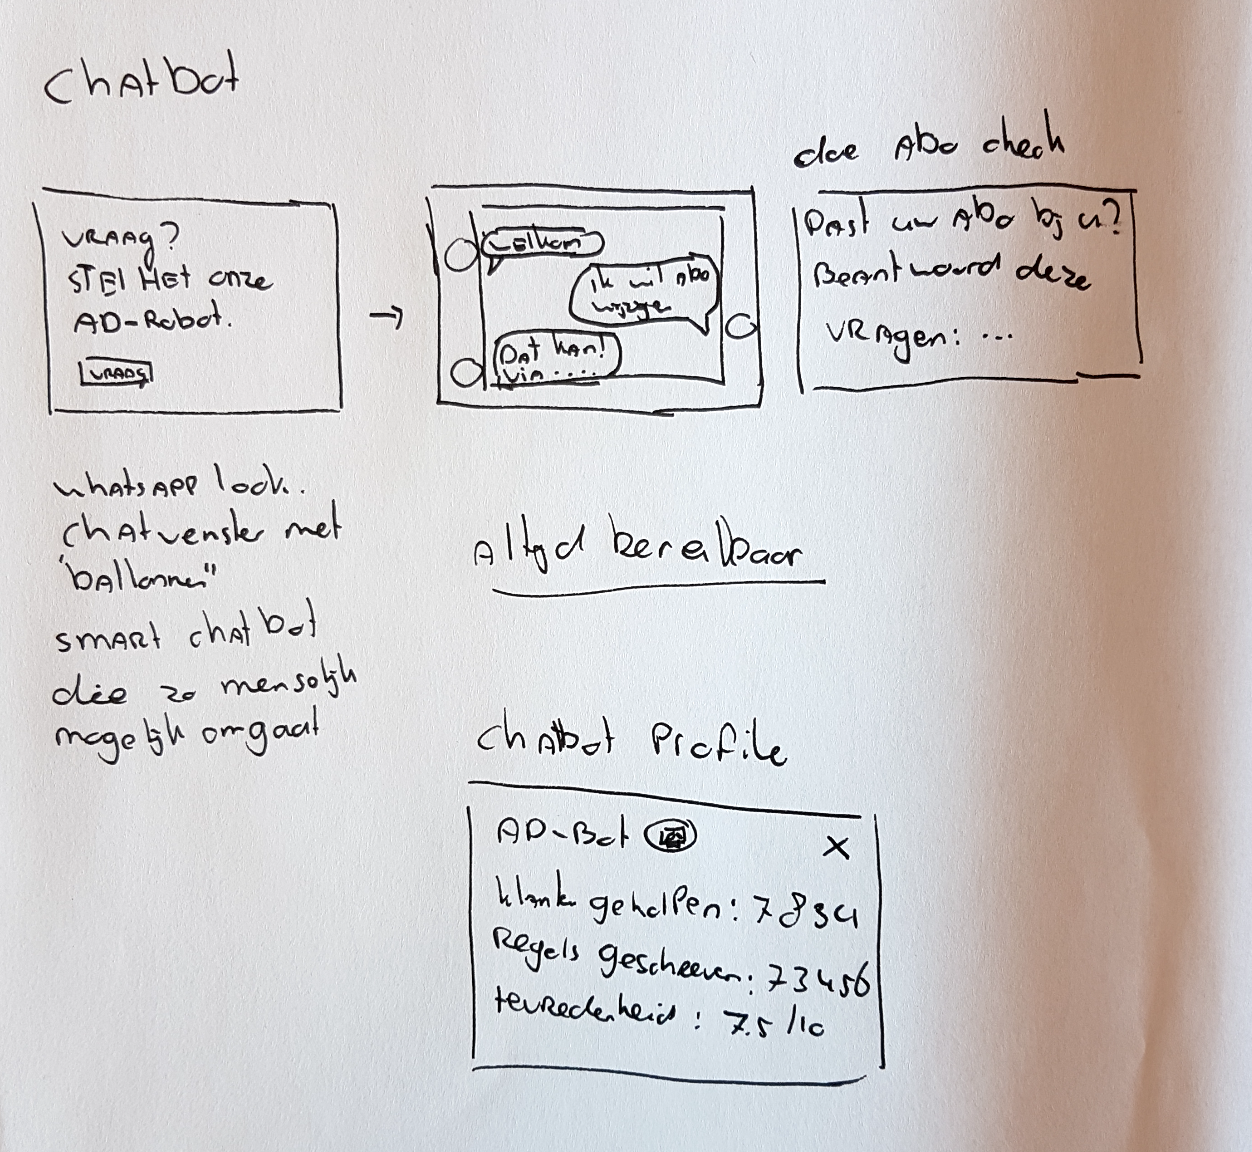 Chatbot
VRAAg?
STEl HEt onze
AD-Robot.
VRAAG
welkom
ik wil Abo
wijzige
DAt kAn!
via ....
doe Abo check
PAst uw Abo bij u?
BeAntwoord deze
VRAgen: ...
whatsAPP look..
ChAtvenster met
"bAllonnen"
smARt chAtbot
die zo menselijk
mogelijk omgaat
Altijd bereikbaar
ChAtbot Profile
AD-Bot
X
klanten geholpen: 7834
Regels geschreven: 73456
tevRedenheid: 7.5/10